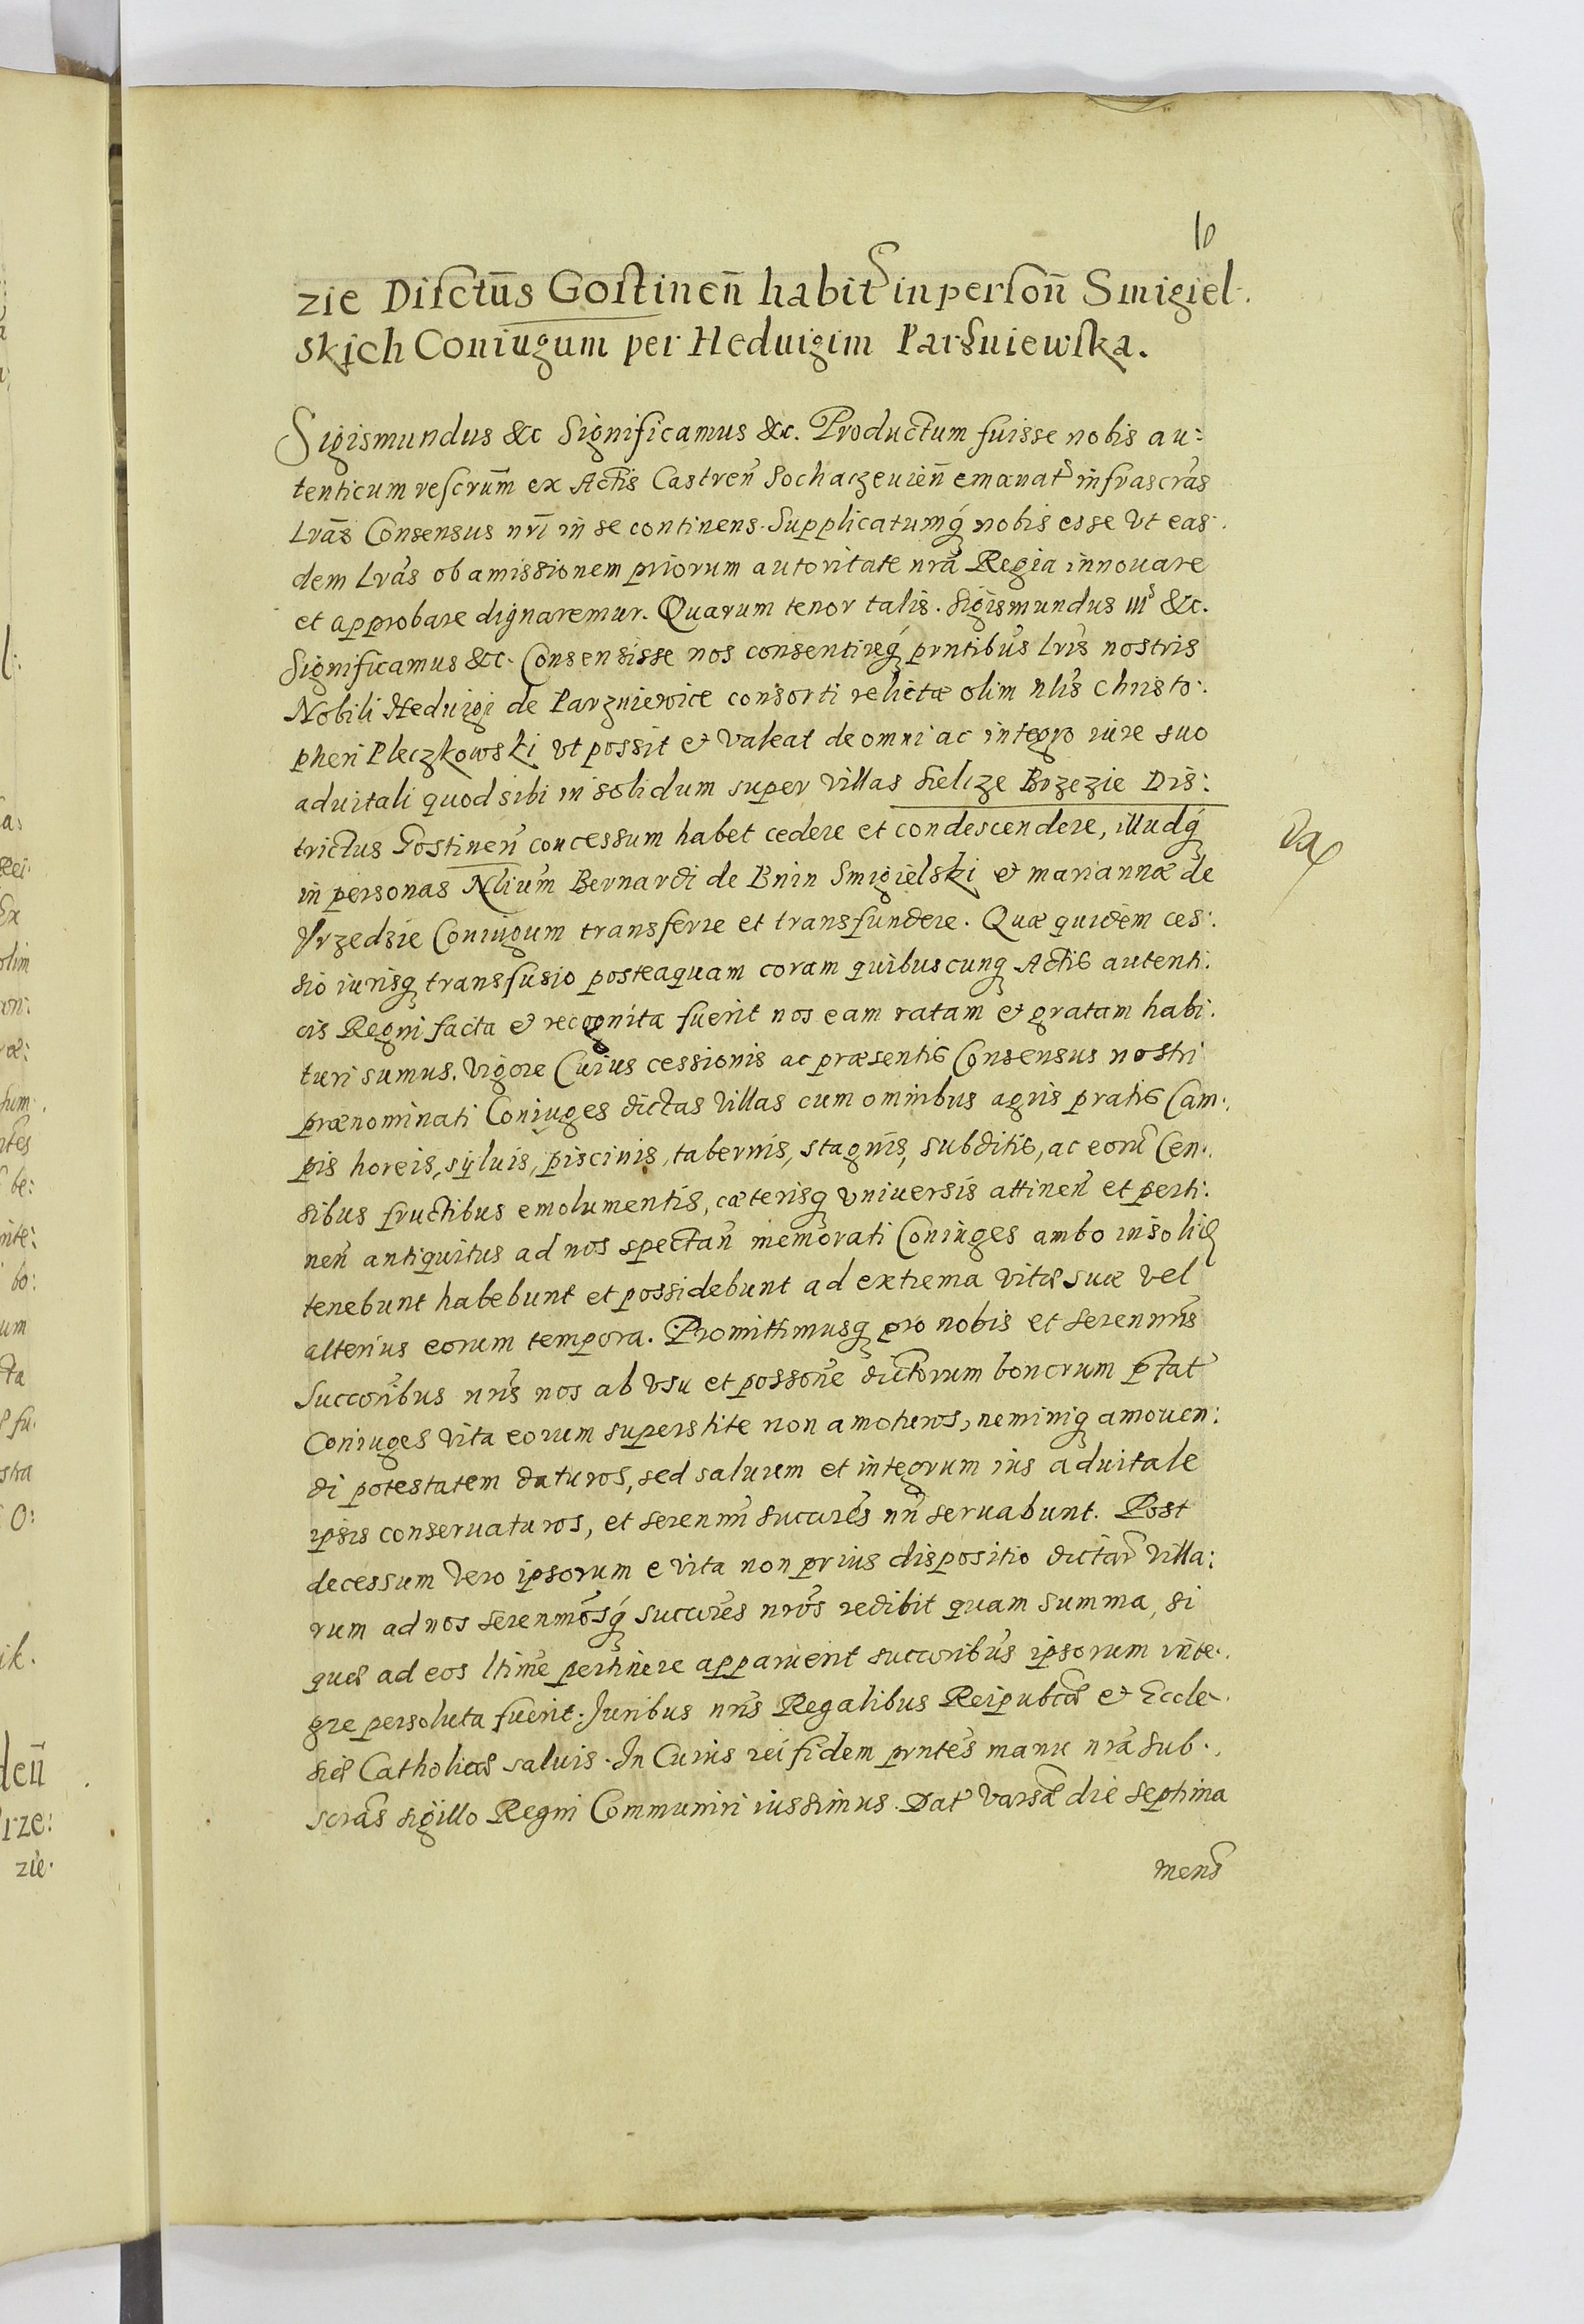 10
zie Disctūs Gostinen̄ habit in person̄ Smigiel.
skich Coniugum per Heduigim Parzniewska.
Sigismundus &c Significamus &c. Productum fuisse nobis au:
tenticum rescrūm ex Actis Castren̄ Sochaczeuien̄ emanat infrascras
Lrās Consensus nrī in se continens. Supplicatumq nobis esse vt eas.
dem Lrās ob amissionem priorum autoritate nrā Regia innouare
et approbare dignaremur. Quarum tenor talis. Sigismundus III &c.
Significamus &c. Consensisse nos consentireq prntibus lris nostris
Nobili Heduigi de Parzniewice consorti relictæ olim Nlis Christo:
pheri Pleczkowski vt possit et valeat de omni ac integro iure suo
aduitali quod sibi in solidum super villas Sielize Brzezie Dis:
trictus Gostinen̄ concessum habet cedere et condescendere, illudq
in personas Nlium Bernardi de Bnin Smigielski et mariannæ de
Vrzedzie Coniugum transferre et transfundere. Quæ quidem ces:
sio iurisq transfusio posteaquam coram quibuscunq Actis autenti.
cis Regni facta et recognita fuerit nos eam ratam et gratam habi.
turi sumus. Vigore Cuius cessionis ac præsentis Consensus nostri
prænominati Coniuges dictas villas cum omnibus agris pratis Cam.
pis horeis, syluis, piscinis, tabernis, stagnis, subditis, ac eorū Cen.
sibus fructibus emolumentis, cæterisq vniuersis attinen̄ et perti.
nen̄ antiquitus ad nos spectan̄ memorati Coniuges ambo in solid
tenebunt habebunt et possidebunt ad extrema vitæ suæ vel
alterius eorum tempora. Promittimusq pro nobis et serenmis
Succoribus nris nos ab vsu et possone dictorum bonorum ptat
Coniuges vita eorum superstite non amoturos, neminiq amouen:
di potestatem daturos, sed saluum et integrum ius aduitale
ipsis conseruaturos, et serenmi succores nri seruabunt. Post
decessum vero ipsorum e vita non prius dispositio dictar villa:
rum ad nos serenmosq succores nros redibit quam summa, si
quæ ad eos ltime pertinere apparuerit succoribus ipsorum inte.
gre persoluta fuerit. Juribus nris Regalibus Reipublcæ et Eccle.
siæ Catholicæ saluis. In Cuius rei fidem prntes manu nrā sub.
scras sigillo Regni Communiri iussimus. Dat Varsæ die septima
mens